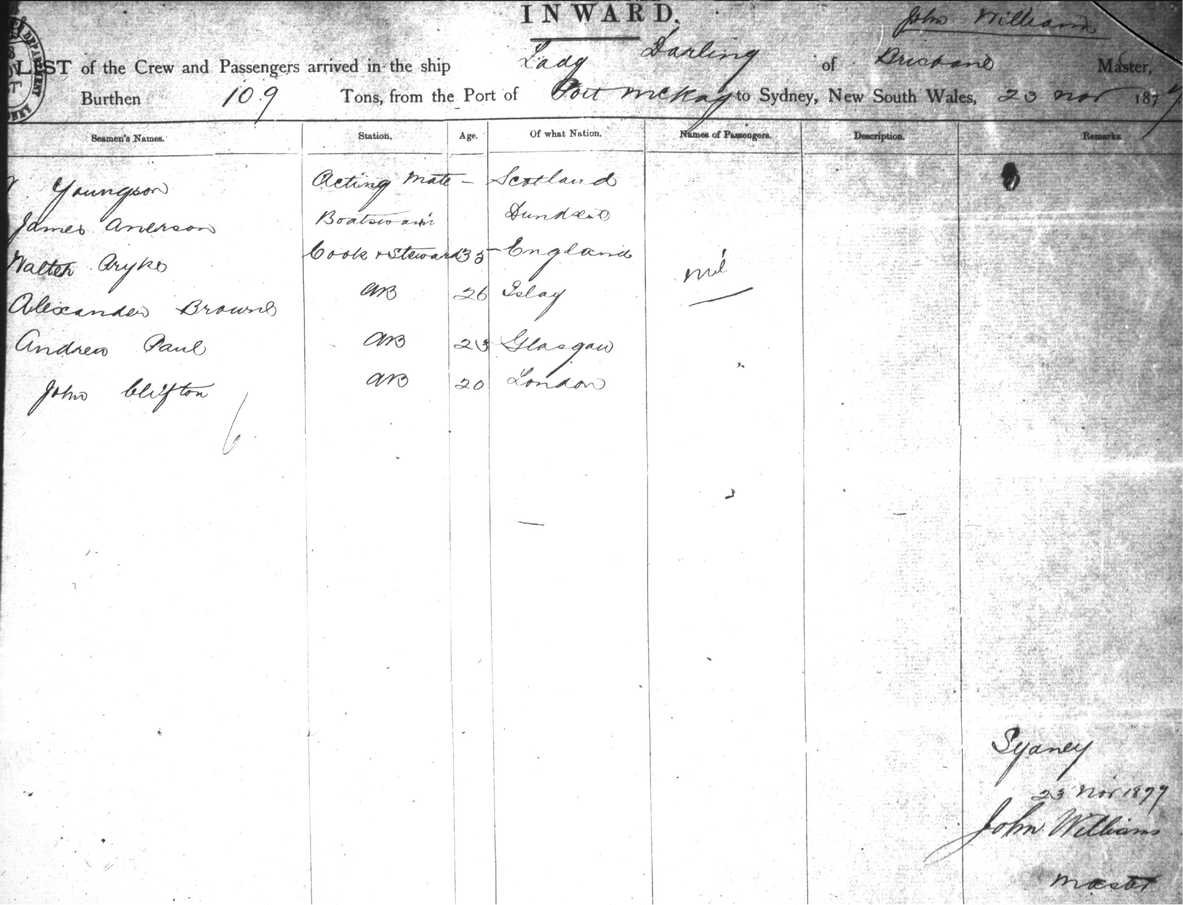 INWARD.
John Williams
LIST of the Crew and Passengers arrived in the ship Lady Darling of Brisbane Master,
Burthen 109 Tons, from the Port of Port McKay to Sydney, New South Wales, 23 Nov 1877
Seamen's Names. Station. Age. Of what Nation. Names of Passengers. Description. Remarks
Youngson Acting Mate - Scotland
James Anerson Boatswain Dundee
Walter Cook & Steward 35 England nil
Alexander Browne AB 26 Islay
Andrew Paul AB 23 Glasgow
John Clifton AB 20 London
6
Sydney
23 Nov 1877
John Williams
Master